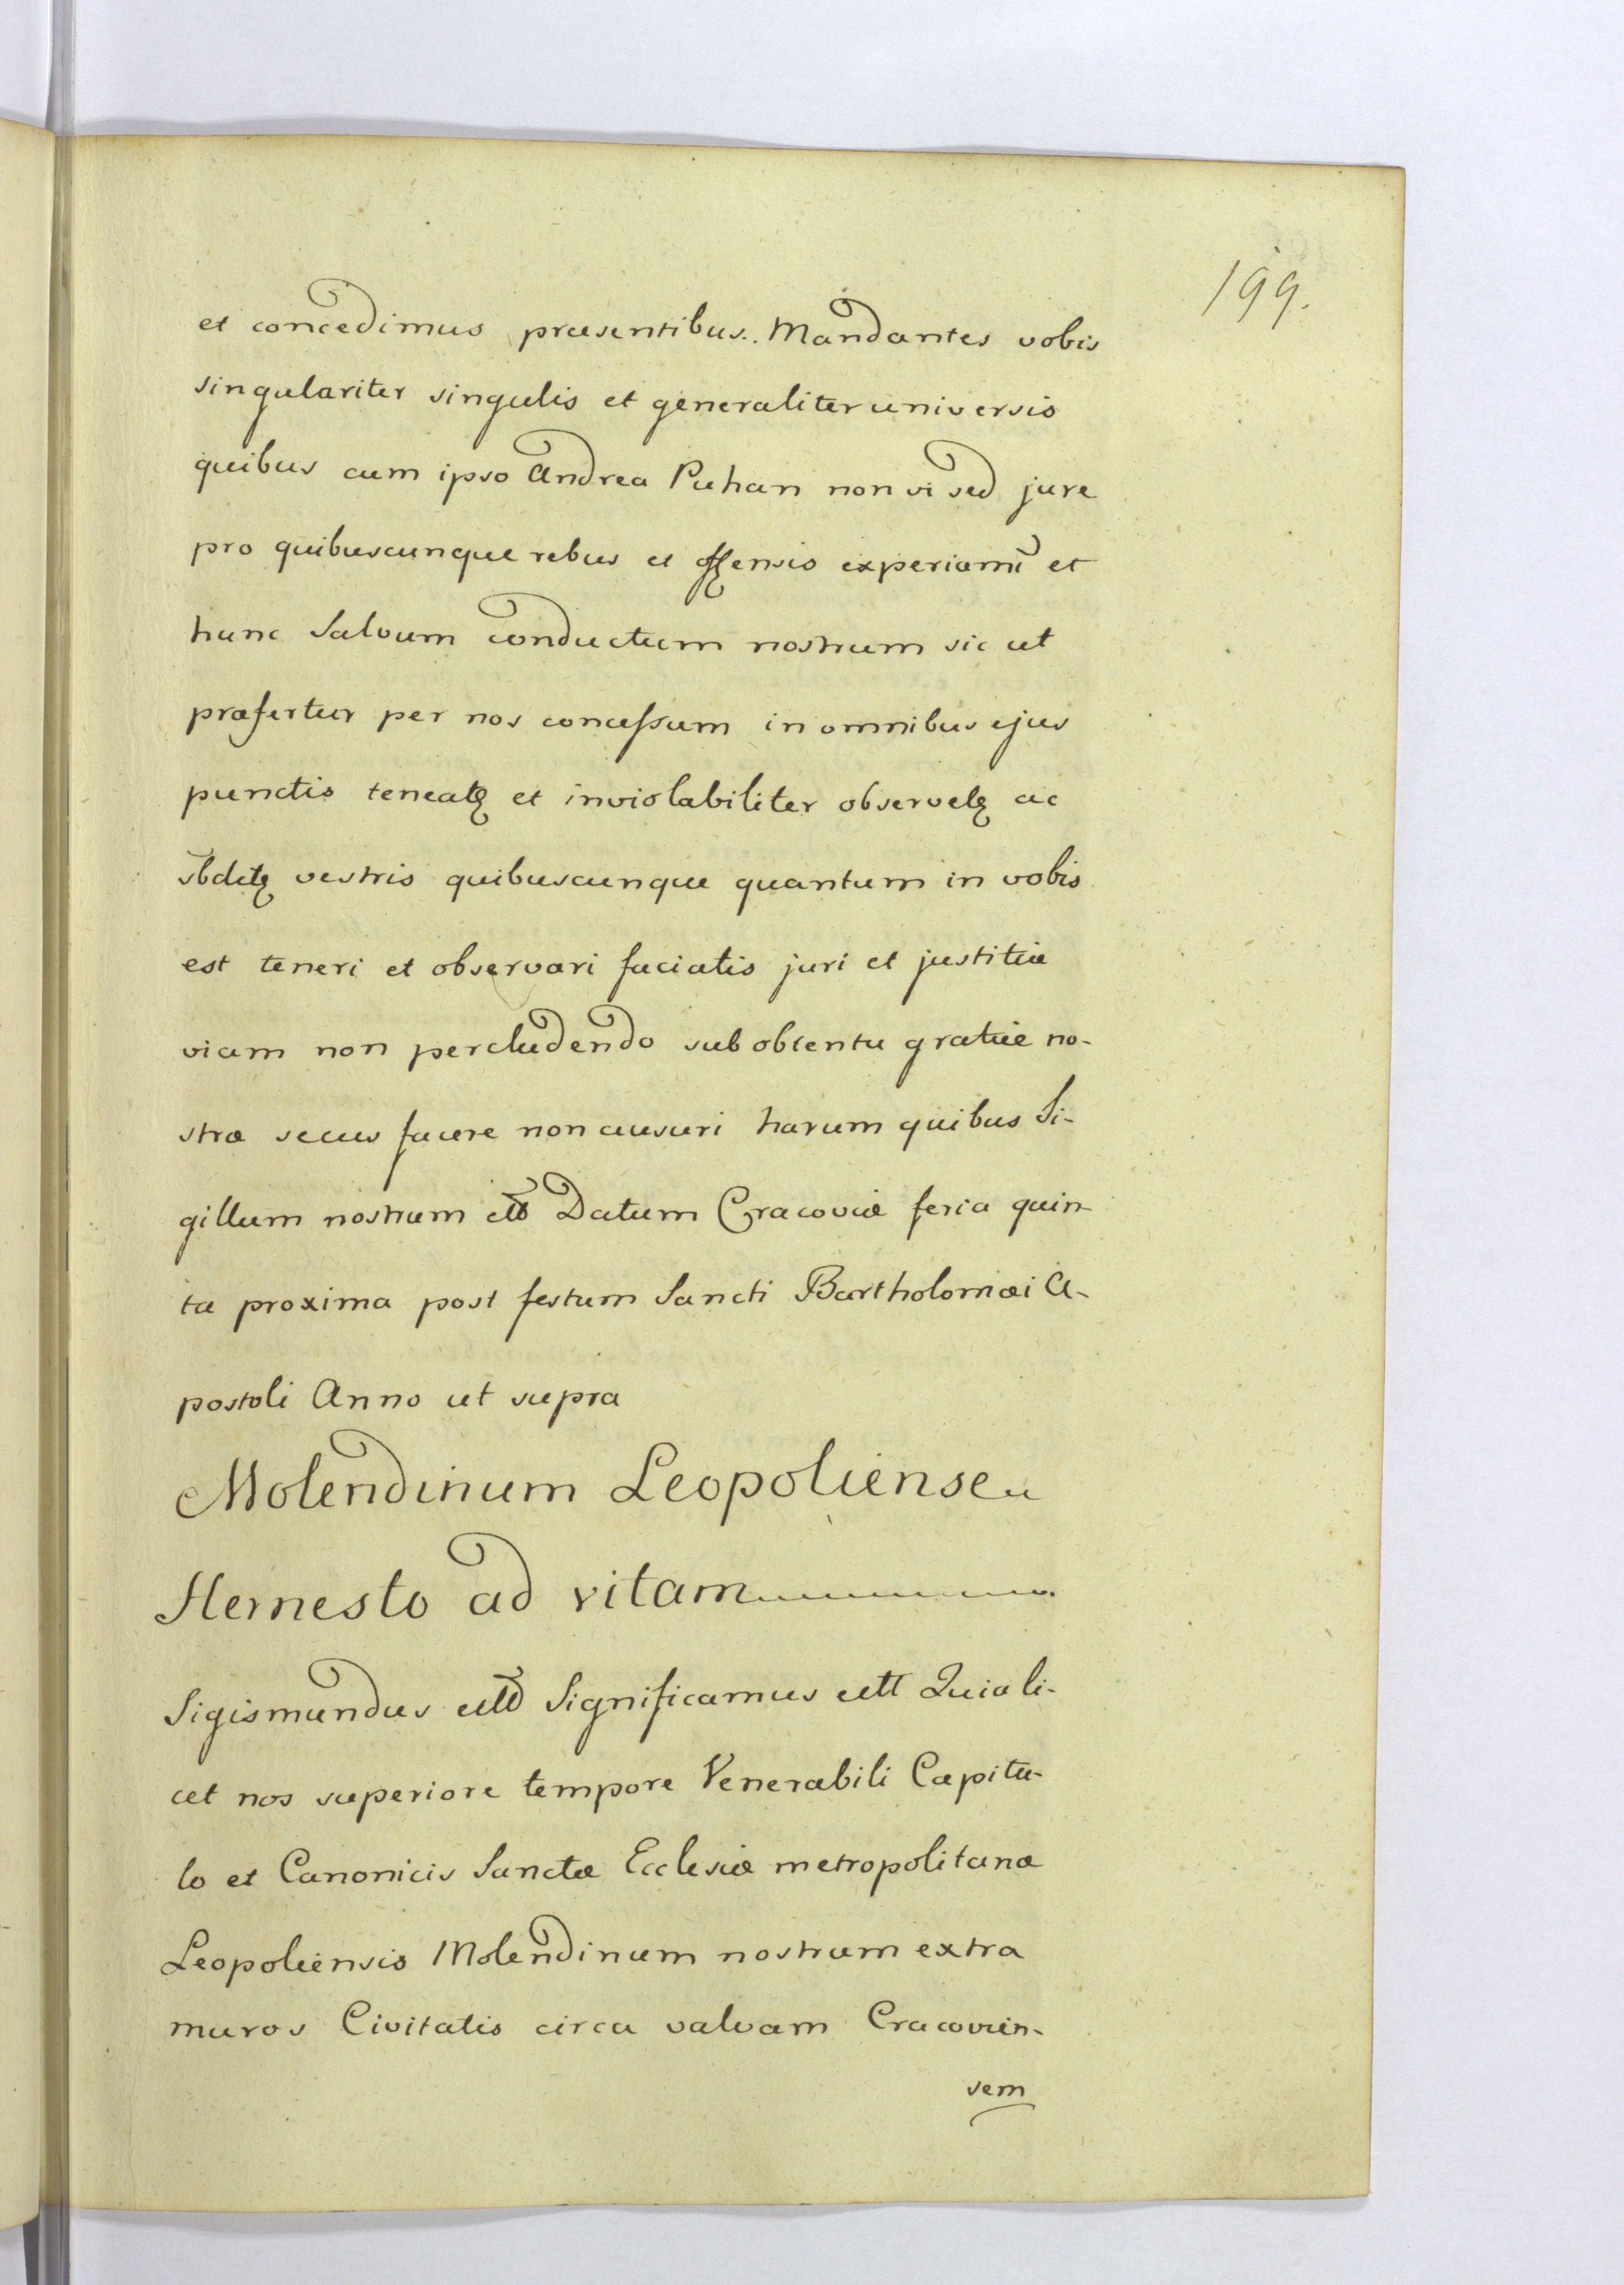 199.
et concedimus præsentibus. Mandantes vobis
singulariter singulis et generaliter universis
quibus cum ipso Andrea Puhan non vi sed jure
pro quibuscunque rebus et offensis experiami et
hunc Salvum conductum nostrum sic ut
præfertur per nos concessum in omnibus ejus
punctis teneatq et inviolabiliter observetq ac
sbditq vestris quibuscunque quantum in vobis
est teneri et observari faciatis juri et justitiæ
viam non percludendo sub obtentu gratiæ no-
stræ secus facere non ausuri harum quibus Si-
gillum nostrum ett Datum Cracoviæ feria quin-
ta proxima post festum Sancti Bartholomæi A-
postoli Anno ut supra
Molendinum Leopoliense
Hernesto ad vitam
Sigismundus ett Significamus ett Quia li-
cet nos superiore tempore Venerabili Capitu-
lo et Canonicis Sanctæ Ecclesiæ metropolitanæ
Leopoliensis Molendinum nostrum extra
muros Civitatis circa valvam Cracovien-
sem